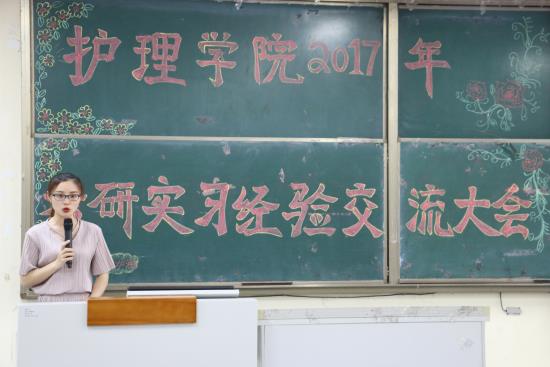 护理学院2017年
研实习经验交流大会